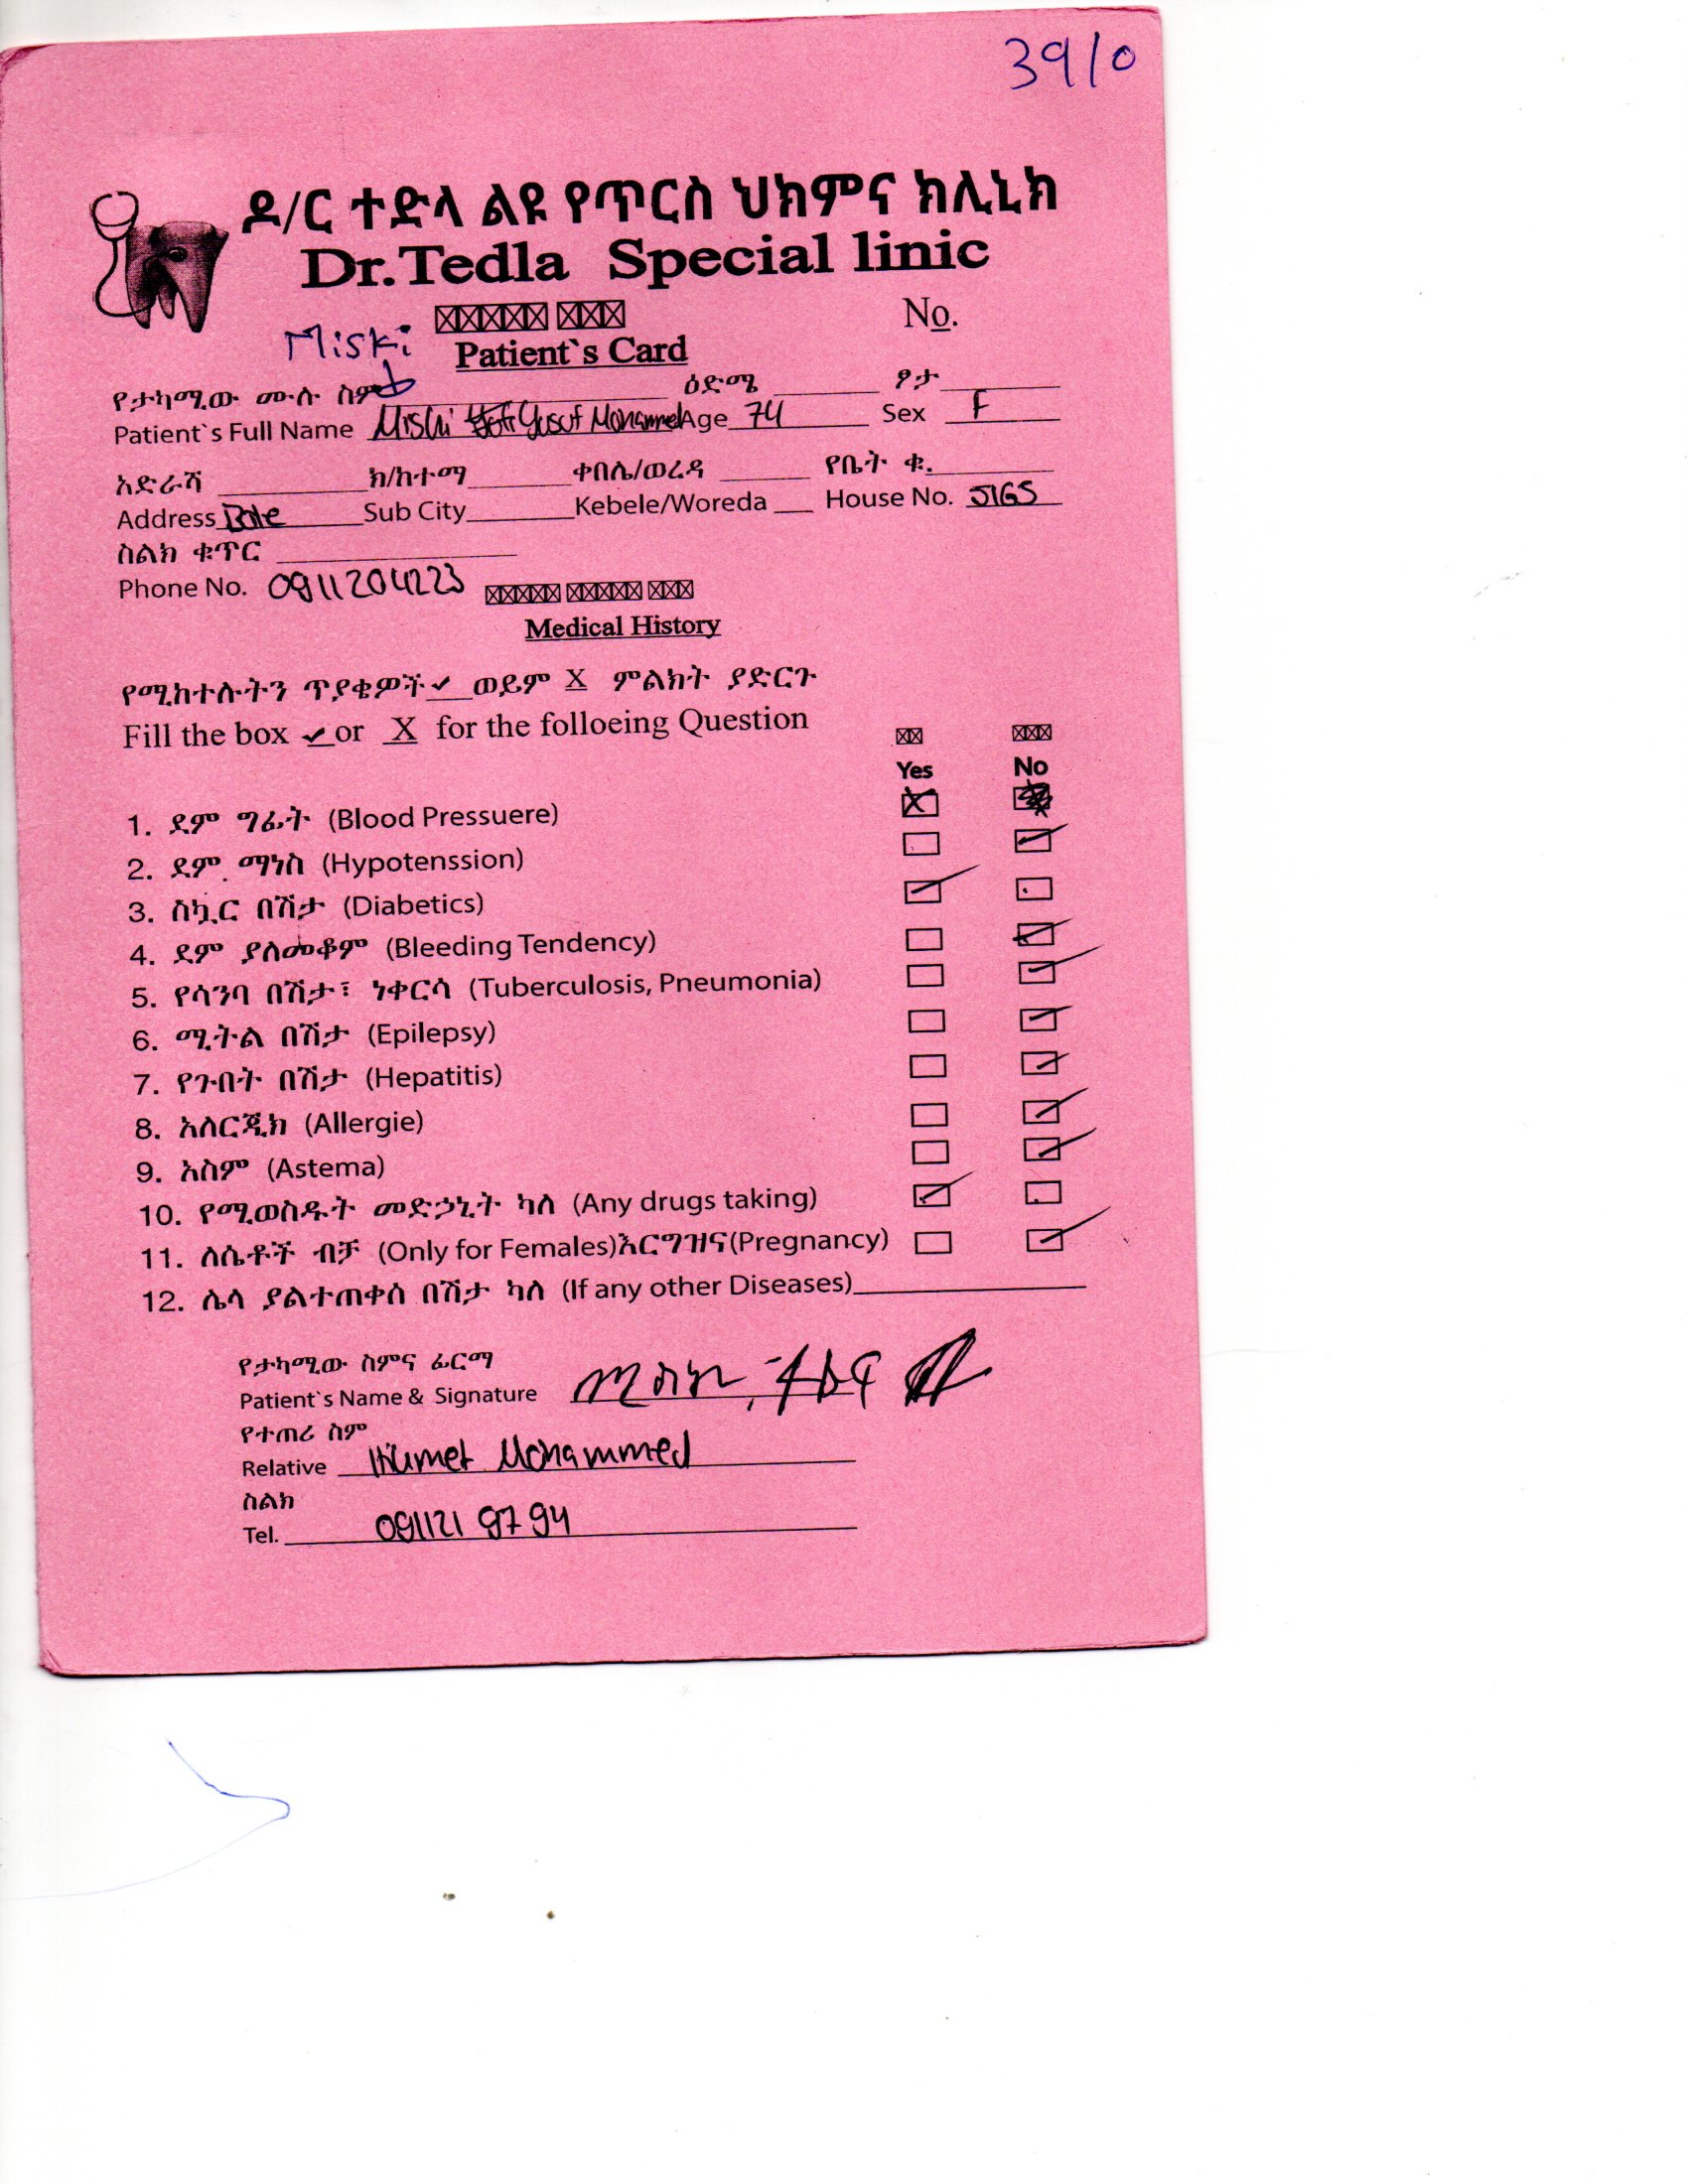 3910
ዶ/ር ተድላ ልዩ የጥርስ ህክምና ክሊኒክ
Dr.Tedla Special linic
No.
Miski
Patient`s Card
የታካሚው ሙሉ ስም ዕድሜ ፆታ
Patient`s Full Name Miski Yusuf Mohammed Age 74 Sex F
አድራሻ ክ/ከተማ ቀበሌ/ወረዳ የቤት ቁ.
Address Bole Sub City Kebele/Woreda House No.
ስልክ ቁጥር
Phone No. 0911204223
Medical History
የሚከተሉትን ጥያቄዎች ✔ ወይም X ምልክት ያድርጉ
Fill the box ✔ or X for the folloeing Question
Yes No
1. ደም ግፊት (Blood Pressuere)
2. ደም ማነስ (Hypotenssion)
3. ስኳር በሽታ (Diabetics)
4. ደም ያለመቆም (Bleeding Tendency)
5. የሳንባ በሽታ፣ ነቀርሳ (Tuberculosis, Pneumonia)
6. ሚትል በሽታ (Epilepsy)
7. የጉበት በሽታ (Hepatitis)
8. አለርጂክ (Allergie)
9. አስም (Astema)
10. የሚወስዱት መድኃኒት ካለ (Any drugs taking)
11. ለሴቶች ብቻ (Only for Females)እርግዝና(Pregnancy)
12. ሌላ ያልተጠቀሰ በሽታ ካለ (If any other Diseases)
የታካሚው ስምና ፊርማ
Patient`s Name & Signature
የተጠሪ ስም
Relative Mohammed
ስልክ
Tel. 091121 87 94